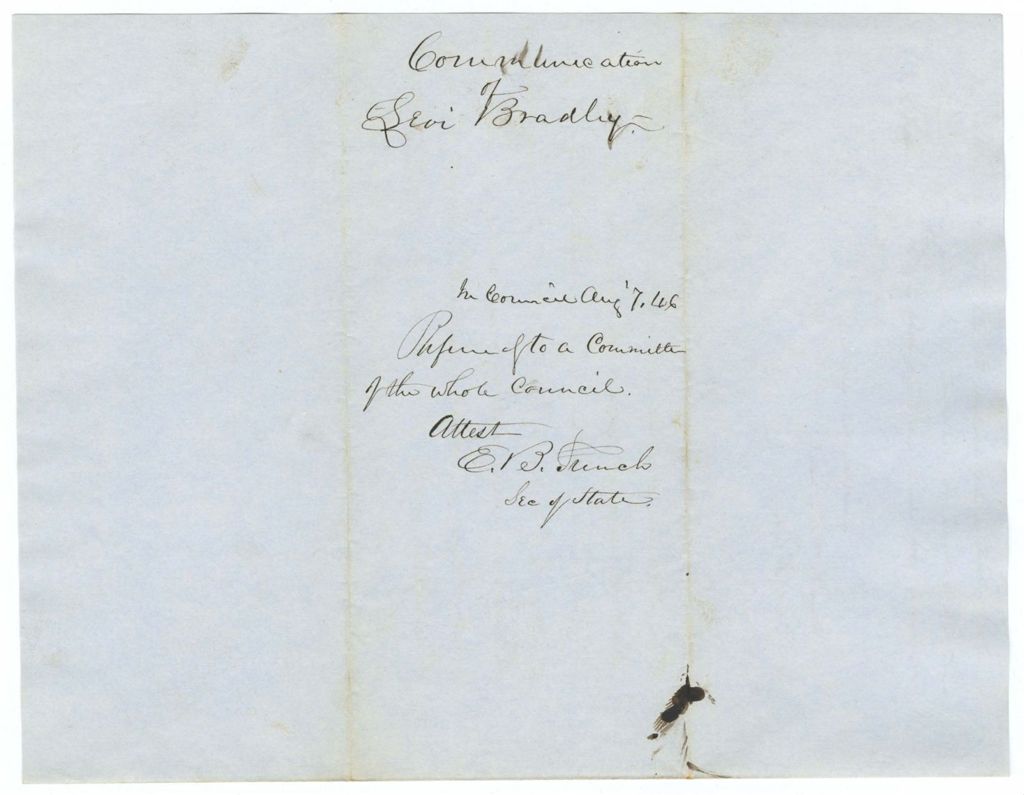 Communication
of
Levi Bradley.
In Council Aug 7. 46
Referred to a Committee
of the whole Council.
Attest
E. B. French
Sec of State.